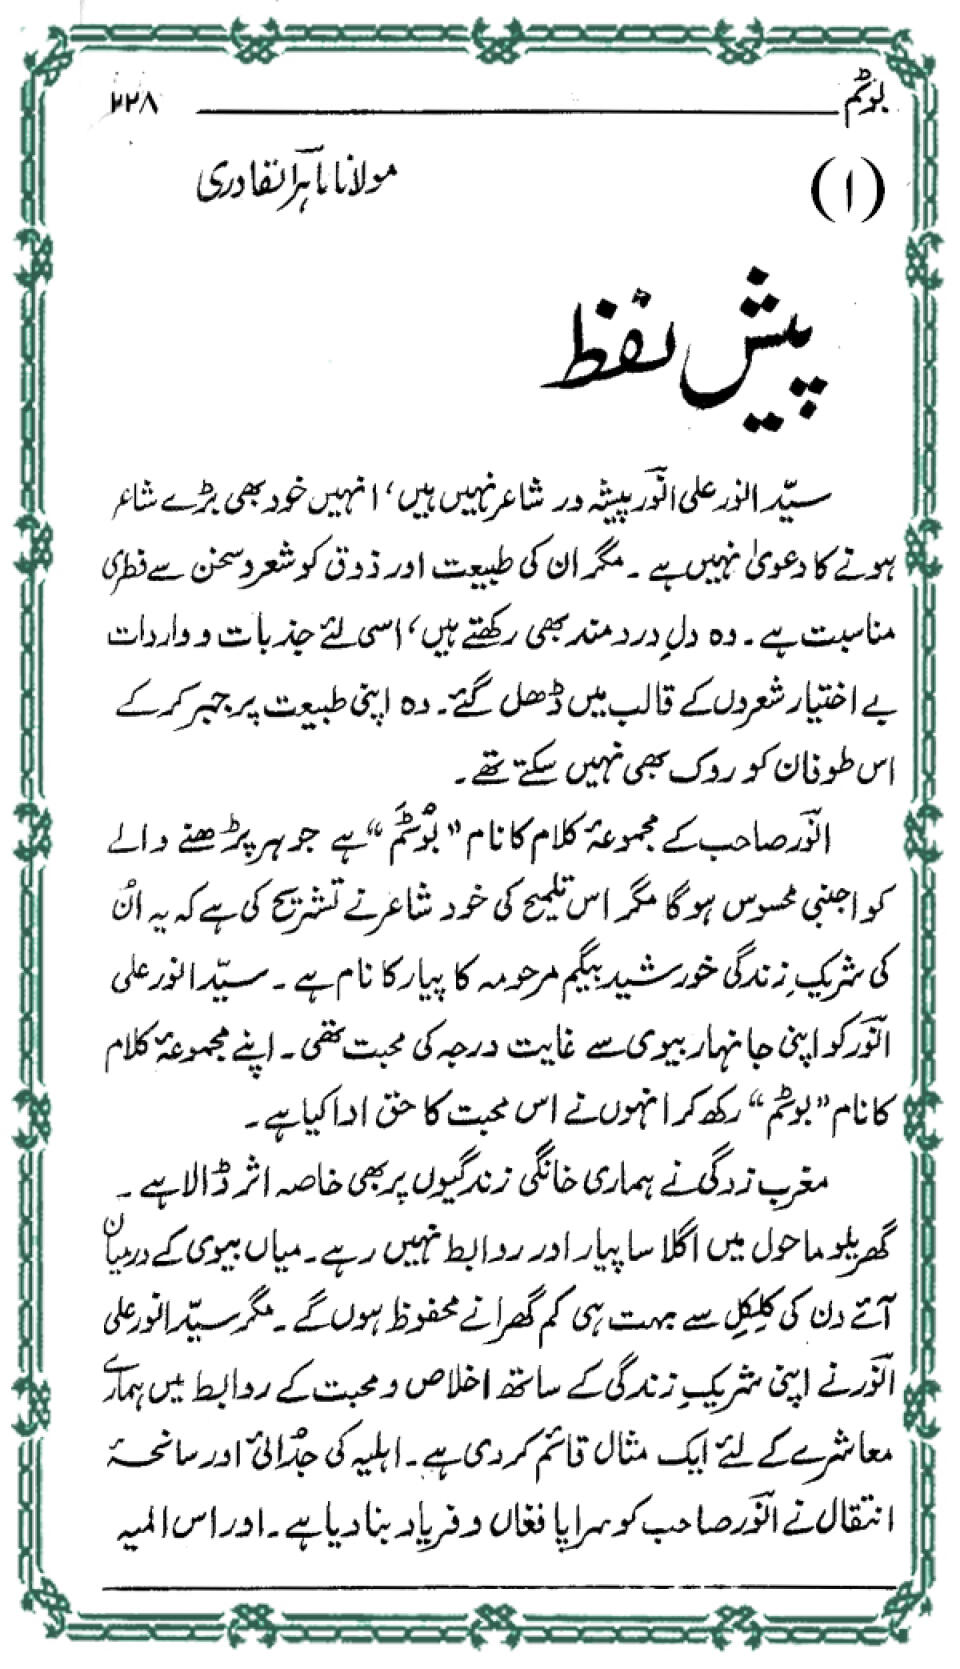 بوٹم ۲۲۸
(۱) مولانا ماہر القادری
پیش لفظ
سیّد انور علی انوؔر پیشہ ور شاعر نہیں ہیں، انہیں خود بھی بڑے شاعر
ہونے کا دعویٰ نہیں ہے۔ مگر ان کی طبیعت اور ذوق کو شعر و سخن سے فطری
مناسبت ہے۔ وہ دلِ درد مند بھی رکھتے ہیں، اسی لئے جذبات و واردات
بے اختیار شعروں کے قالب میں ڈھل گئے۔ وہ اپنی طبیعت پر جبر کر کے
اس طوفان کو روک بھی نہیں سکتے تھے۔
انوؔر صاحب کے مجموعۂ کلام کا نام “بُوٹَم” ہے جو ہر پڑھنے والے
کو اجنبی محسوس ہوگا مگر اس تلمیح کی خود شاعر نے تشریح کی ہے کہ یہ اُن
کی شریکِ زندگی خورشید بیگم مرحومہ کا پیار کا نام ہے۔ سیّد انور علی
انوؔر کو اپنی جانہار بیوی سے غایت درجہ کی محبت تھی۔ اپنے مجموعۂ کلام
کا نام “بوٹم” رکھ کر انہوں نے اس محبت کا حق ادا کیا ہے۔
مغرب زدگی نے ہماری خانگی زندگیوں پر بھی خاصہ اثر ڈالا ہے۔
گھریلو ماحول میں اگلا سا پیار اور روابط نہیں رہے۔ میاں بیوی کے درمیان
آئے دن کی کِلکِل سے بہت ہی کم گھرانے محفوظ ہوں گے۔ مگر سیّد انور علی
انوؔر نے اپنی شریکِ زندگی کے ساتھ اخلاص و محبت کے روابط میں ہمارے
معاشرے کے لئے ایک مثال قائم کر دی ہے۔ اہلیہ کی جُدائی اور سانحۂ
انتقال نے انوؔر صاحب کو سراپا فغاں و فریاد بنا دیا ہے۔ اور اس المیہ